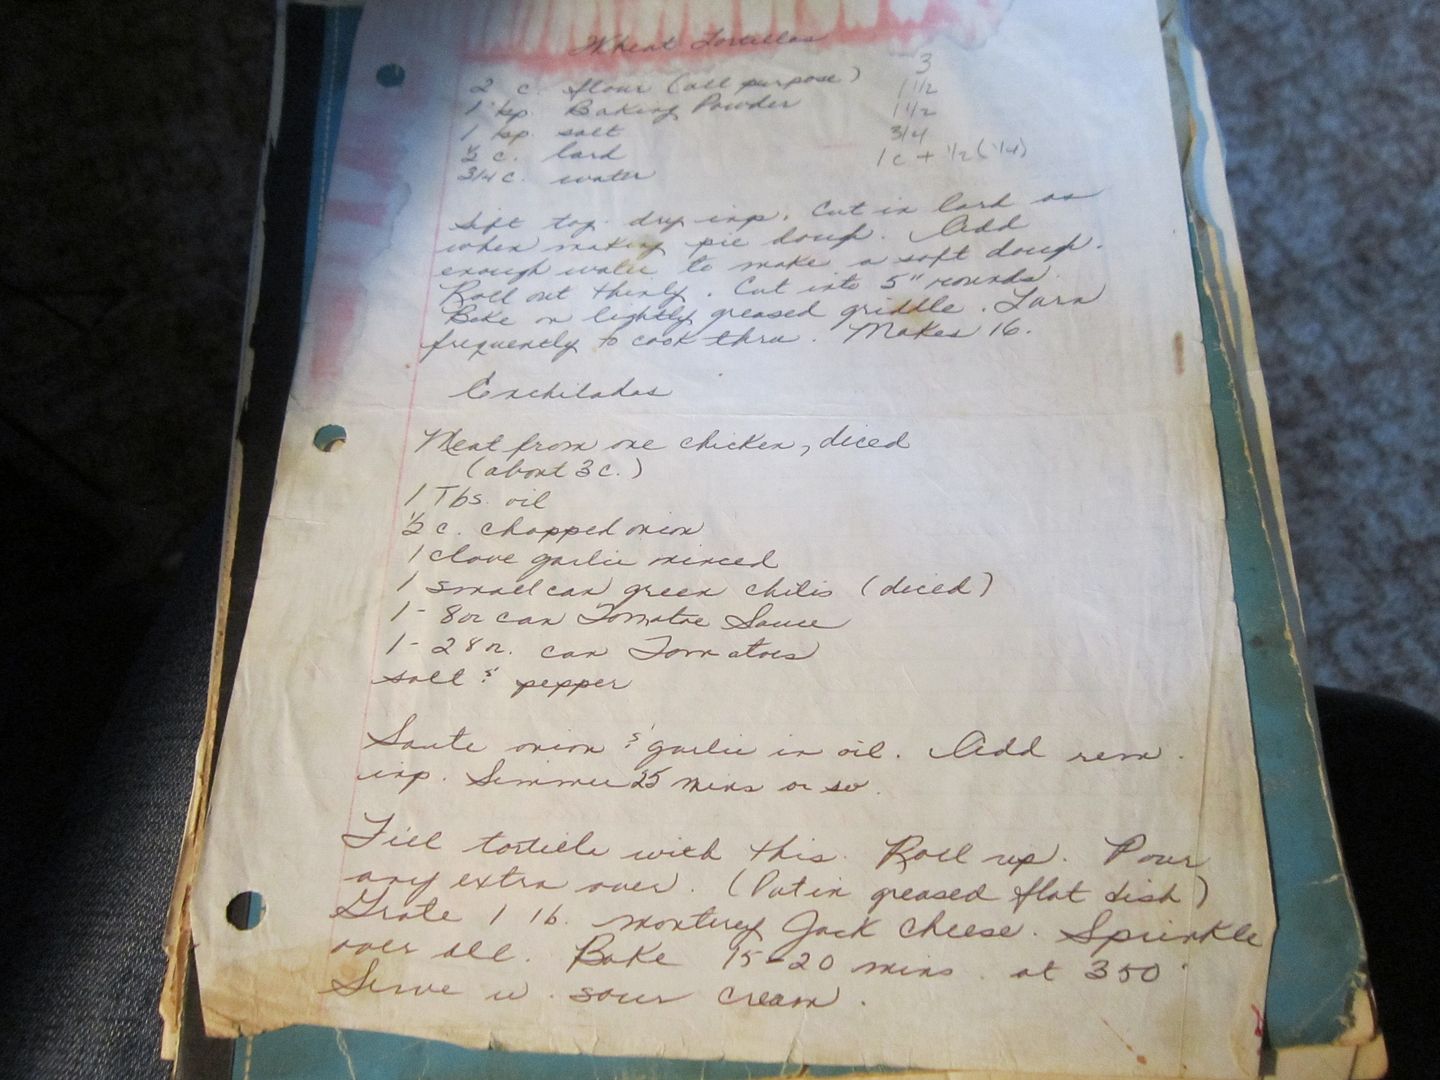 Wheat Tortillas
2 c. flour (all purpose) 3
1 tsp. Baking Powder 1 1/2
1 tsp. salt 1 1/2
1/2 c. lard 3/4
3/4 c. water 1c + 1/2 (1/4)
Sift tog. dry ing. Cut in lard as
when making pie dough. Add
enough water to make a soft dough.
Roll out thinly. Cut into 5" rounds.
Bake on lightly greased griddle. Turn
frequently to cook thru. Makes 16.
Enchiladas
Meat from one chicken, diced
(about 3 c.)
1 Tbs. oil
1/2 c. chopped onion
1 clove garlic minced
1 small can green chilis (diced)
1 - 8oz can Tomatoe Sauce
1 - 28oz. can Tomatoes
salt & pepper
Saute onion & garlic in oil. Add rem.
ing. Simmer 25 mins or so.
Fill tortilla with this. Roll up. Pour
any extra over. (Put in greased flat dish)
Grate 1 lb. monterey Jack Cheese. Sprinkle
over all. Bake 15-20 mins. at 350°
Serve w. sour cream.